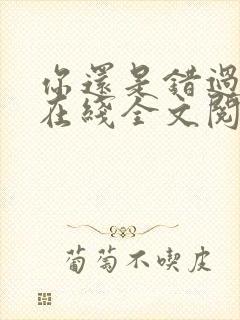 你還是錯過
在綫全文閱
葡萄不喫皮